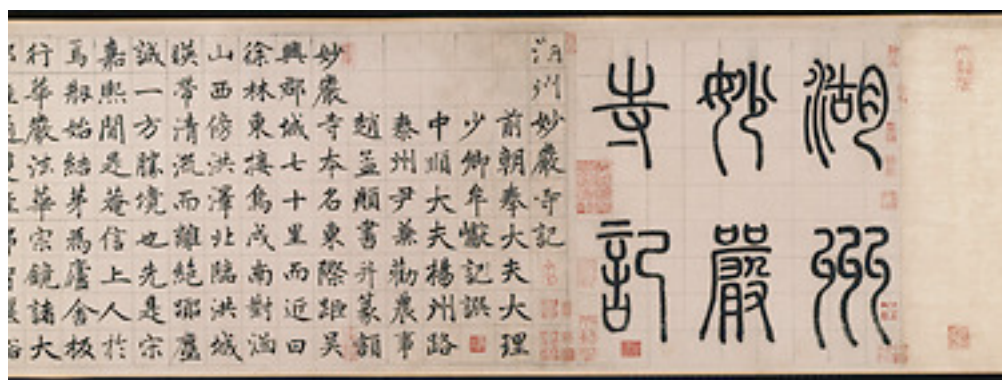 湖州
妙嚴
寺記
湖州妙嚴寺記
前朝奉大夫大理
少卿牟巘記譔
中順大夫揚州路
泰州尹兼勸農事
趙孟頫書并篆額
妙嚴寺本名東際距吳
興郡城七十里而近曰
徐林東接烏戍南對涵
山西傍洪澤北臨洪城
映帶清流而離絕
誠一方勝境也先是宗
嘉熙間是菴信上人於
焉剏始結茅為廬舍板
行華嚴法華宗鏡諸大